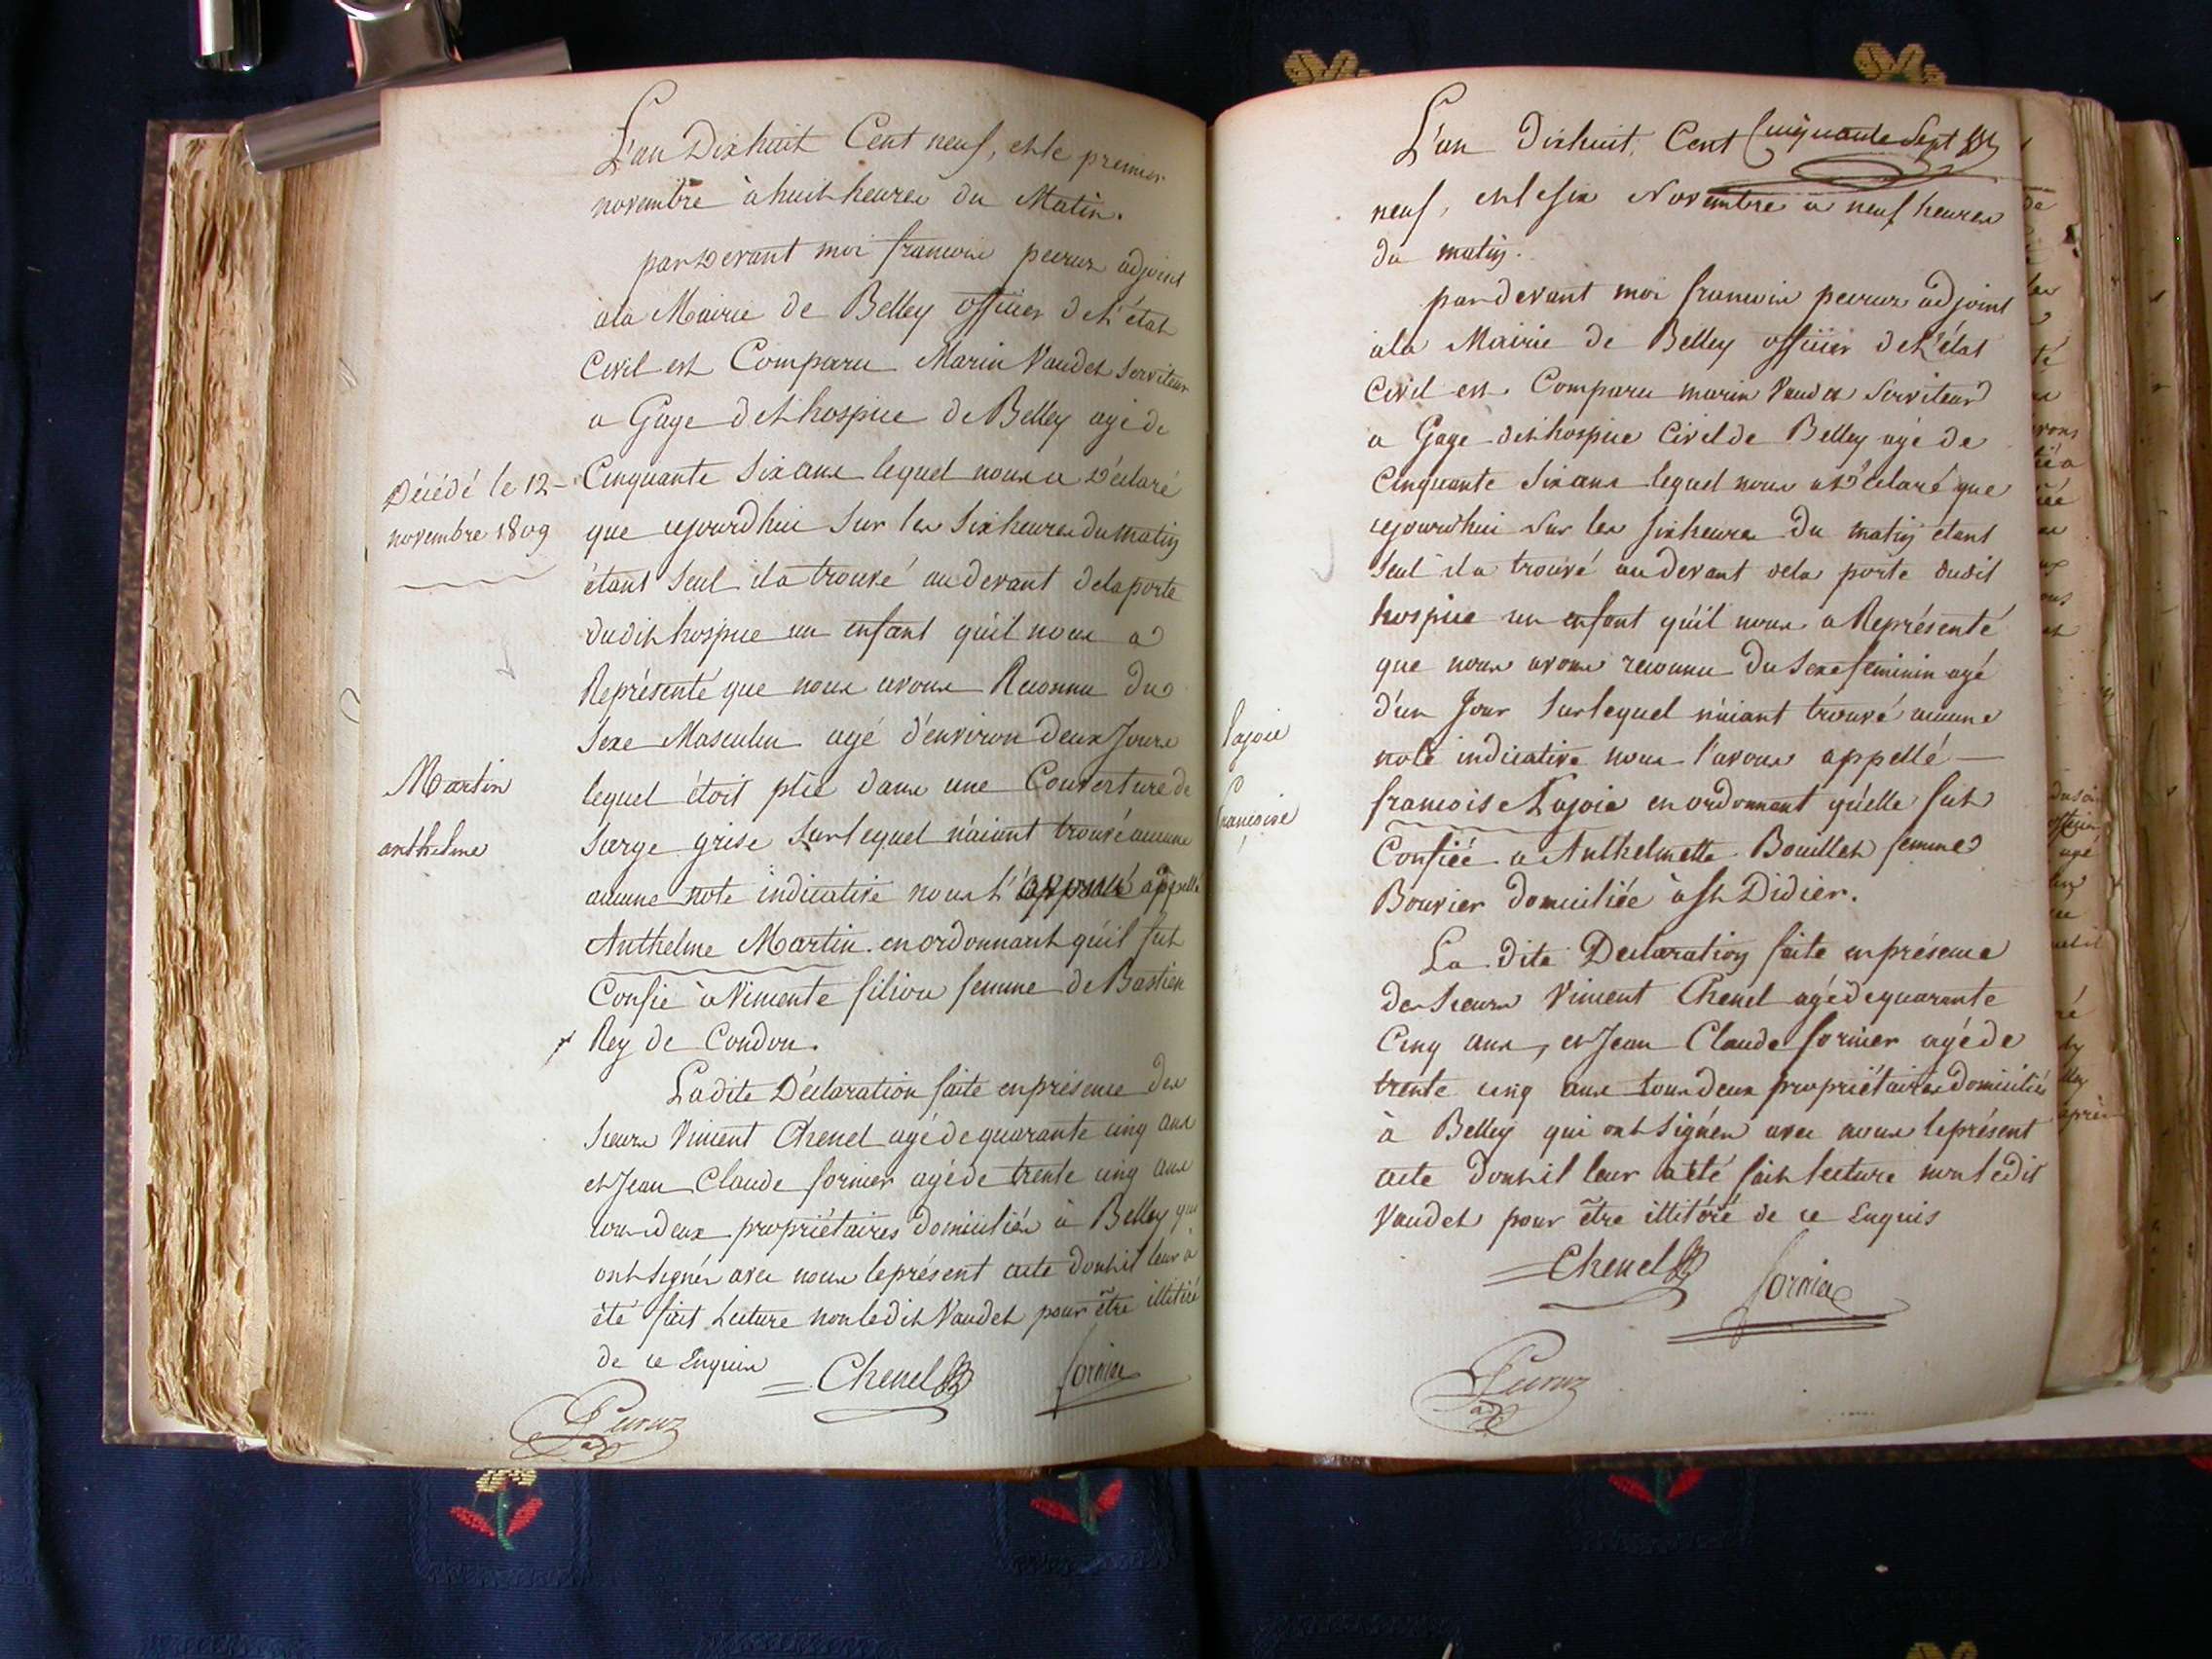 L'an Dixhuit Cent neuf, et le premier
novembre à huit heures du Matin.
pardevant moi francois peruz adjoint
ala Mairie de Belley officier de l'état
Civil est Comparu Marin Vaudet Serviteur
a Gage de l'hospice de Belley agé de
Cinquante Six ans lequel nous a Déclaré
que cejourdhui Sur les Six heures du matin
étant Seul ila trouvé au devant dela porte
dudit hospice un enfant qu'il nous a
Représenté que nous avons Reconnu du
Sexe Masculin agé d'environ deux Jours
lequel étoit plié dans une Couverture de
Sarge grise Surlequel n'aiant trouvé aucune
aucune note indicative nous l' appellé
Anthelme Martin en ordonnant qu'il fut
Confié à Vincente filion femme de Bastien
Rey de Condon.
Ladite Déclaration faite en présence des
Sieurs Vincent Chenel agé de quarante cinq ans
et Jean Claude fornier agé de trente cinq ans
tous deux propriétaires domiciliés à Belley qui
ont Signés avec nous leprésent acte dont il leur à
été fait Lecture non ledit Vaudet pour être illitéré
de ce Enquis
Chenel
fornier
Peruz
adj
Décédé le 12
novembre 1809
Martin
anthelme
Cinquante Sept
L'an Dixhuit Cent
neuf, et le Six Novembre a neuf heures
du matin.
pardevant moi francois peruz adjoint
ala Mairie de Belley officier de l'état
Civil est Comparu marin Vaudet Serviteur
a Gage de l'hospice Civil de Belley agé de
Cinquante Six ans lequel nous a Déclaré que
cejourdhui Sur les Six heures du matin étant
Seul ila trouvé au devant dela porte dudit
hospice un enfant qu'il nous a Représenté
que nous avons reconnu du Sexe feminin agé
d'un Jour Surlequel n'aiant trouvé aucune
note indicative nous l'avons appellé
francoise Lajoie en ordonnant qu'elle fut
Confiée a Anthelmette Bouillet femme
Bouvier domiciliée à St Didier.
La dite Declaration faite en présence
des Sieurs Vincent Chenel agé de quarante
Cinq ans, et Jean Claude fornier agé de
trente cinq ans tous deux propriétaires domiciliés
à Belley qui ont Signés avec nous leprésent
acte dont il leur a été fait lecture non ledit
Vaudet pour être illitéré de ce Enquis
Chenel
fornier
Peruz
adj
Lajoie
francoise